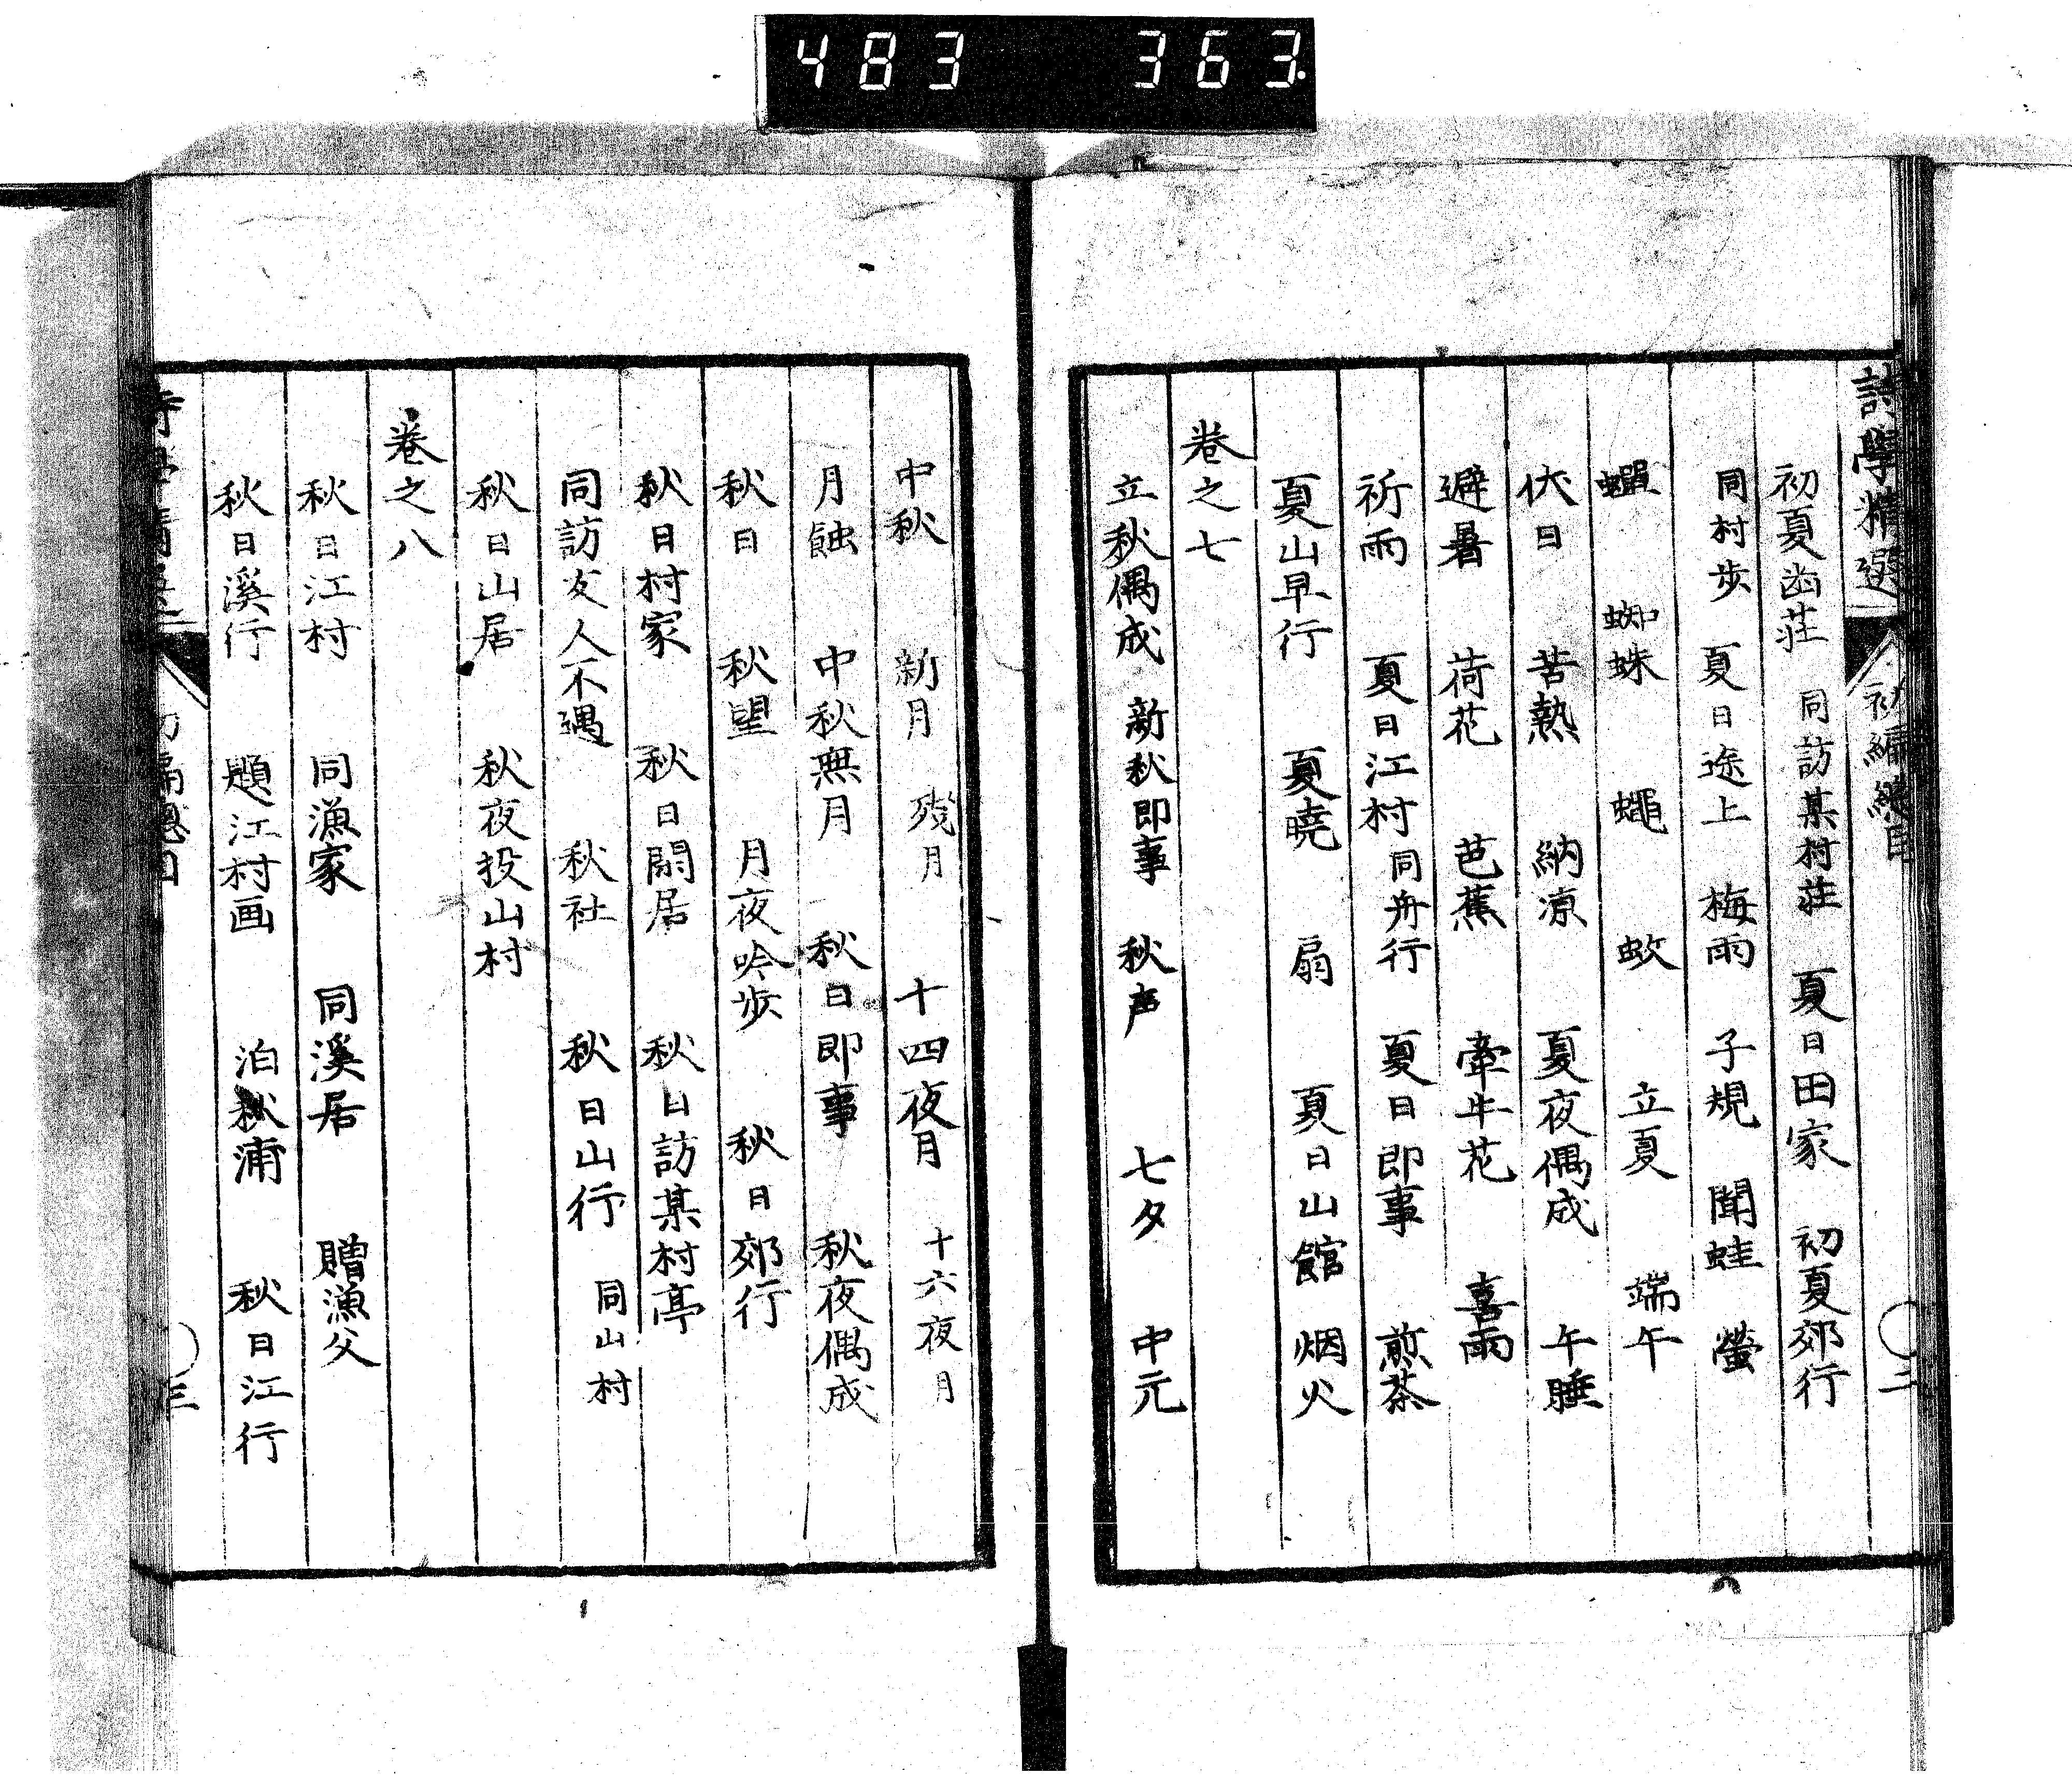 483 363.
詩學精選 初編總目 二
初夏幽莊 同訪某村莊 夏日田家 初夏郊行
同村步 夏日途上 梅雨 子規 聞蛙 螢
蟬 蜘蛛 蠅 蚊 立夏 端午
伏日 苦熱 納凉 夏夜偶成 午睡
避暑 荷花 芭蕉 牽牛花 喜雨
祈雨 夏日江村 同舟行 夏日即事 煎茶
夏山早行 夏曉 扇 夏日山館 烟火
卷之七
立秋偶成 新秋即事 秋声 七夕 中元
中秋 新月 殘月 十四夜月 十六夜月
月蝕 中秋無月 秋日即事 秋夜偶成
秋日 秋望 月夜吟步 秋日郊行
秋日村家 秋日閑居 秋日訪某村亭
同訪友人不遇 秋社 秋日山行 同山村
秋日山居 秋夜投山村
卷之八
秋日江村 同漁家 同溪居 贈漁父
秋日溪行 題江村画 泊秋浦 秋日江行
三